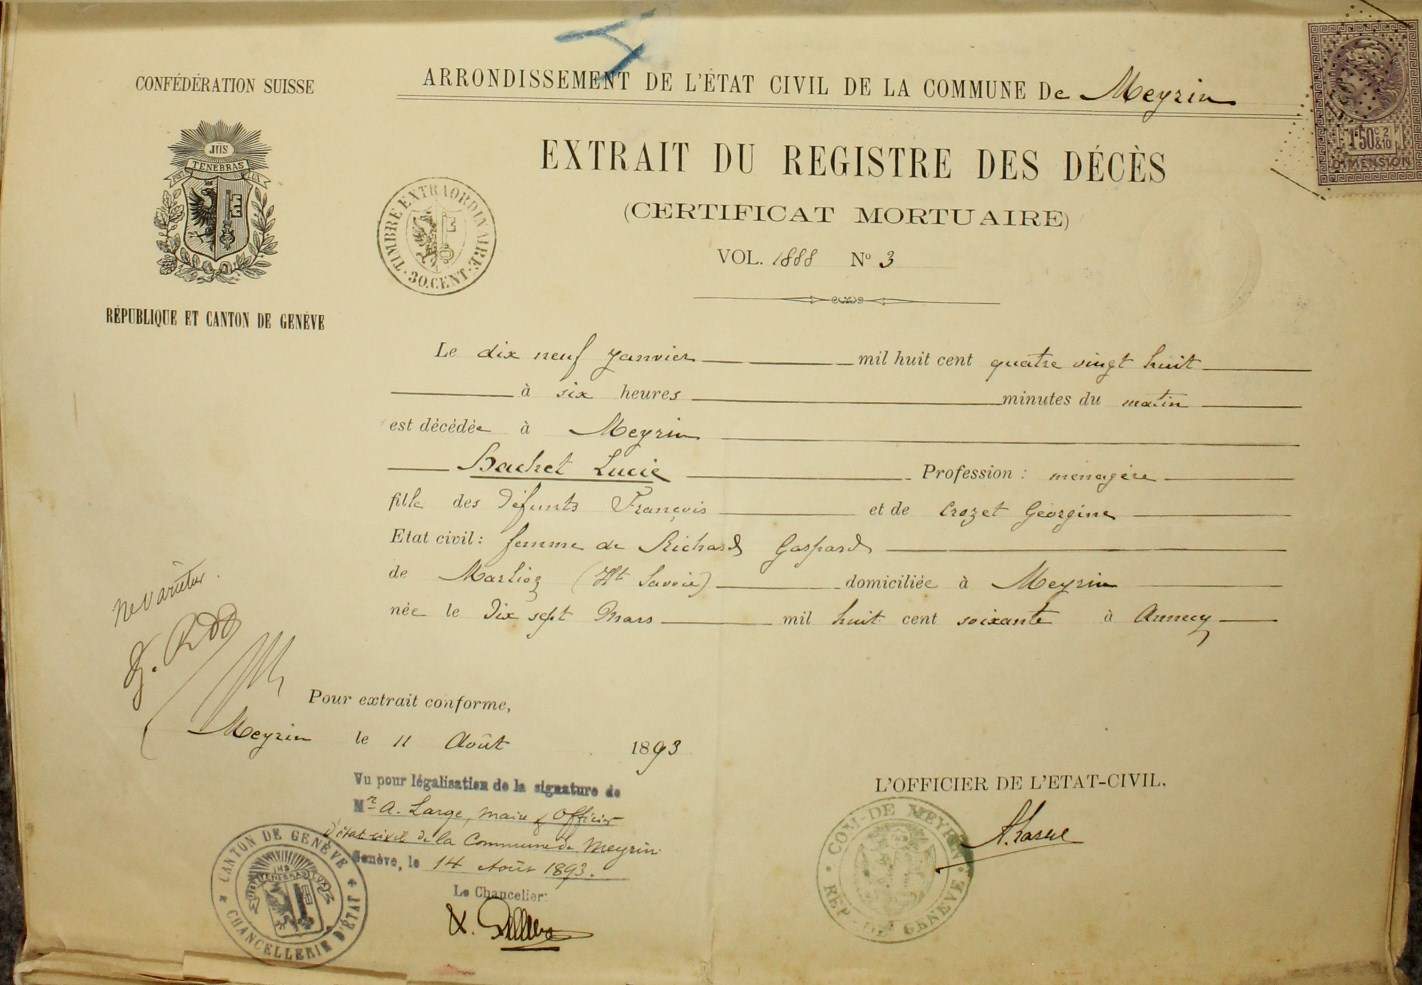 CONFÉDÉRATION SUISSE
JHS
POST TENEBRAS LUX
RÉPUBLIQUE ET CANTON DE GENÈVE
ARRONDISSEMENT DE L'ÉTAT CIVIL DE LA COMMUNE De Meyrin
1F50c 2/10
DIMENSION
EXTRAIT DU REGISTRE DES DÉCÈS
(CERTIFICAT MORTUAIRE)
TIMBRE EXTRAORDINAIRE · 30. CENT.
VOL. 1888 No 3
Le dix neuf Janvier mil huit cent quatre vingt huit
à six heures minutes du matin
est décédée à Meyrin
Bachet Lucie Profession : ménagère
fille des défunts François et de Crozet Georgine
Etat civil : femme de Richard Gaspard
de Marlioz (Hte Savoie) domiciliée à Meyrin
née le Dix sept Mars mil huit cent soixante à Annecy
Ne varietur.
Pour extrait conforme,
Meyrin le 11 Août 1893
Vu pour légalisation de la signature de
Mr A. Large, maire & Officier
d'état civil de la Commune de Meyrin
Genève, le 14 Août 1893.
Le Chancelier:
CANTON DE GENÈVE
CHANCELLERIE D'ÉTAT
L'OFFICIER DE L'ETAT-CIVIL.
A. Large
COM. DE MEYRIN
RÉP. DE GENÈVE